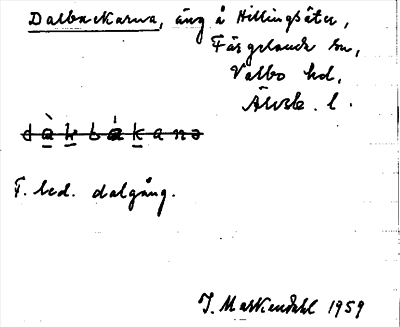 Dalbackarna, äng å Hillingsäter,
Färgelanda sn,
Valbo hd,
Älvsb. l.
dàlbákanə
F. led. dalgång.
J. Markendahl 1959